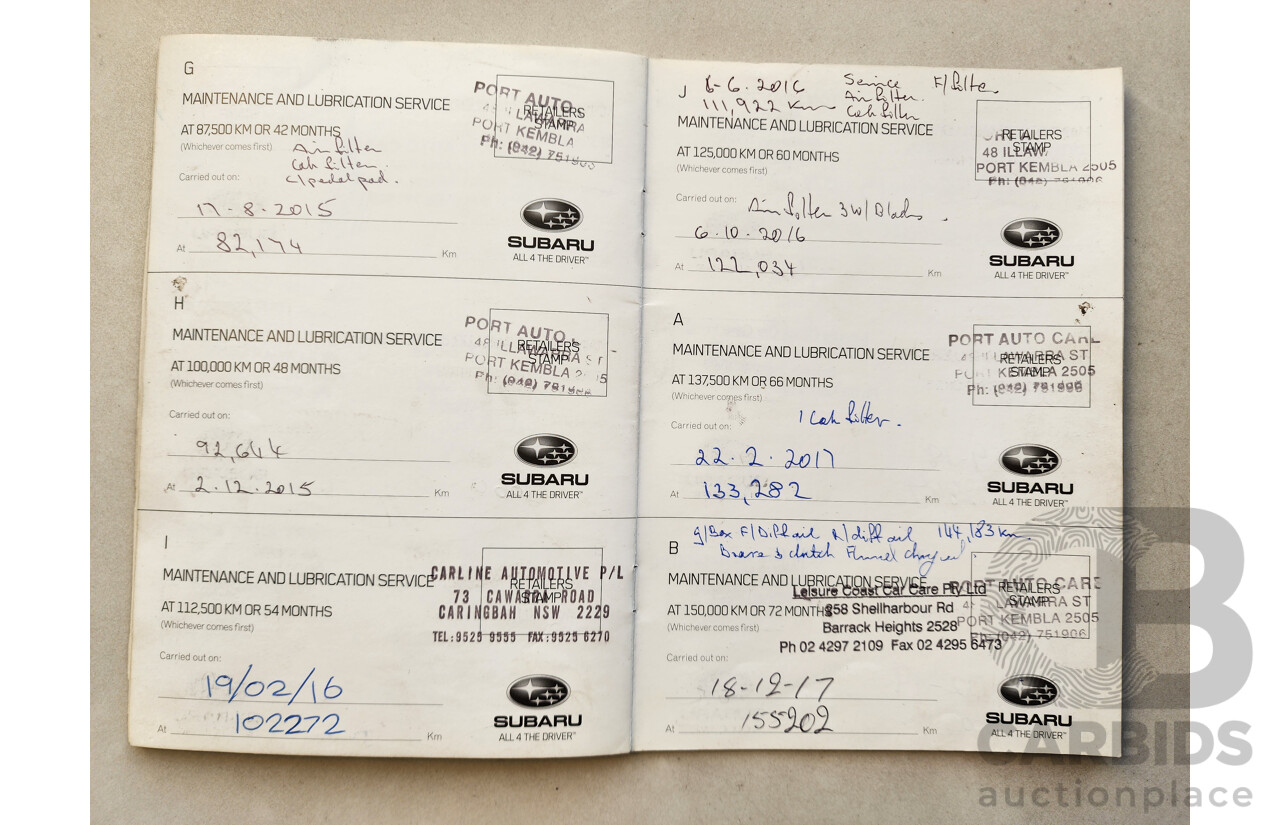 G
MAINTENANCE AND LUBRICATION SERVICE
AT 87,500 KM OR 42 MONTHS
(Whichever comes first)
Air filter
Cab filter.
c/pedal pad.
Carried out on:
17-8-2015
At 82,174 Km
PORT AUTO
RETAILERS
STAMP
ILLAWARRA
PORT KEMBLA
Ph: (042)
SUBARU
ALL 4 THE DRIVER™
H
MAINTENANCE AND LUBRICATION SERVICE
AT 100,000 KM OR 48 MONTHS
(Whichever comes first)
Carried out on:
92,644
At 2.12.2015 Km
PORT AUTO
RETAILERS
STAMP
48 ILLAWARRA ST
PORT KEMBLA
Ph: (042) 751906
SUBARU
ALL 4 THE DRIVER™
I
MAINTENANCE AND LUBRICATION SERVICE
AT 112,500 KM OR 54 MONTHS
(Whichever comes first)
Carried out on:
19/02/16
At 102272 Km
CARLINE AUTOMOTIVE P/L
RETAILERS
STAMP
73 CAWARRA ROAD
CARINGBAH NSW 2229
TEL:9525 9555 FAX:9525 6270
SUBARU
ALL 4 THE DRIVER™
J
6-6.2016 Service F/filter
111,922 Km Air filter.
Cab filter
MAINTENANCE AND LUBRICATION SERVICE
AT 125,000 KM OR 60 MONTHS
(Whichever comes first)
Carried out on:
Air filter 3 W/Blades.
6.10.2016
At 122,034 Km
RETAILERS
STAMP
48 ILLAW
PORT KEMBLA 2505
Ph: (042) 751906
SUBARU
ALL 4 THE DRIVER™
A
MAINTENANCE AND LUBRICATION SERVICE
AT 137,500 KM OR 66 MONTHS
(Whichever comes first)
1 Cab filter.
Carried out on:
22.2.2017
At 133,282 Km
PORT AUTO CARE
RETAILERS
STAMP
ILLAWARRA ST
PORT KEMBLA 2505
Ph: (042) 751906
SUBARU
ALL 4 THE DRIVER™
g/Box F/Diff oil R/diff oil 144,183 km.
& clutch
B
MAINTENANCE AND LUBRICATION SERVICE
AT 150,000 KM OR 72 MONTHS
(Whichever comes first)
Carried out on:
18-12-17
At 155202 Km
Leisure Coast Car Care Pty Ltd
258 Shellharbour Rd
Barrack Heights 2528
Ph 02 4297 2109 Fax 02 4295 6473
PORT AUTO CARE
RETAILERS
STAMP
ILLAWARRA ST
PORT KEMBLA 2505
Ph: (042) 751906
SUBARU
ALL 4 THE DRIVER™
CARBIDS
auctionplace